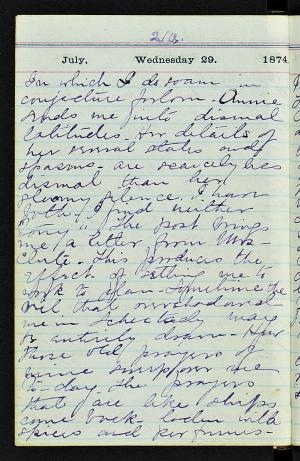 210.
July, Wednesday 29. 1874
In which I do roam in
conjecture forlorn. Annie
sends me into dismal
latitudes. Her details of
her states and
spasms. are scarcely less
dismal than her
gloomy silence. I have
both. I find neither
" The post brings
me a letter from Mrs-
This produces the
effect of setting me to
work to plan - the
veil that overshadowed
me in may
be entirely drawn - How
these old prayers of
mine support me
to-day. The prayers
that are like ships
come back laden with
spices and perfumes-